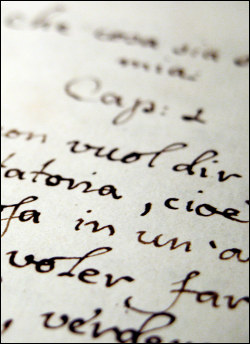 che cosa sia
mia:
Cap: 1
non vuol dir
tatoria, cioè
fa in un'a
voler far
, verder